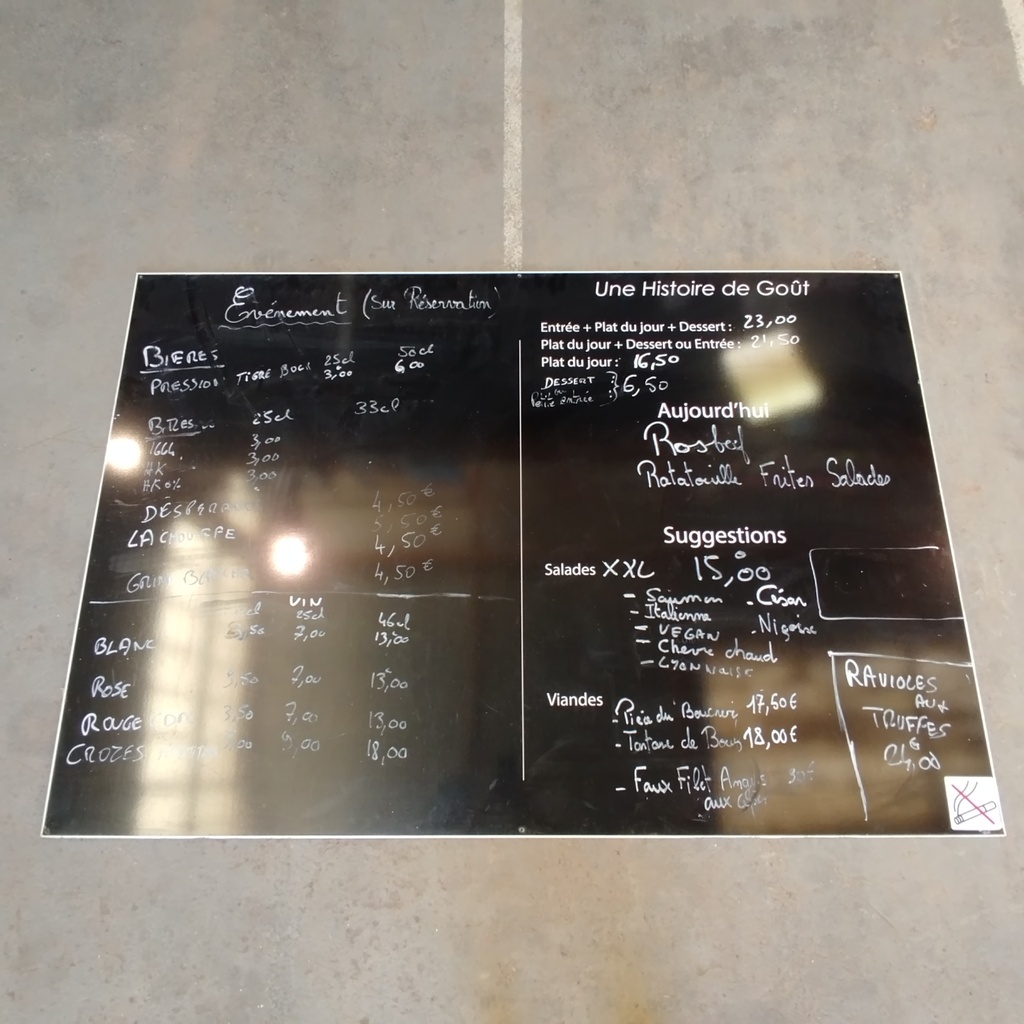 Evénement (Sur Réservation)
BIERES
25cl 50cl
PRESSION TIGRE BOCK 3,00 6,00
25cl 33cl
1664 3,00
HK 3,00
HK 0% 3,00
4,50€
5,50€
LA CHOUFFE 4,50€
4,50€
VIN
25cl 46cl
BLANC 7,00 13,00
ROSE 3,50 7,00 13,00
ROUGE 3,50 7,00 13,00
CROZES 18,00
Une Histoire de Goût
Entrée + Plat du jour + Dessert : 23,00
Plat du jour + Dessert ou Entrée : 21,50
Plat du jour : 16,50
DESSERT
Petite entrée } 6,50
Aujourd'hui
Rosbeef
Ratatouille Frites Salades
Suggestions
Salades XXL 15,00
- Saumon . César
- Italienne
- VEGAN . Niçoise
- Chèvre chaud
- LYONNAISE
Viandes
- Pièce du Boucher 17,50€
- Tartare de Bœuf 18,00€
- Faux Filet 30€
aux
RAVIOLES
AUX
TRUFFES